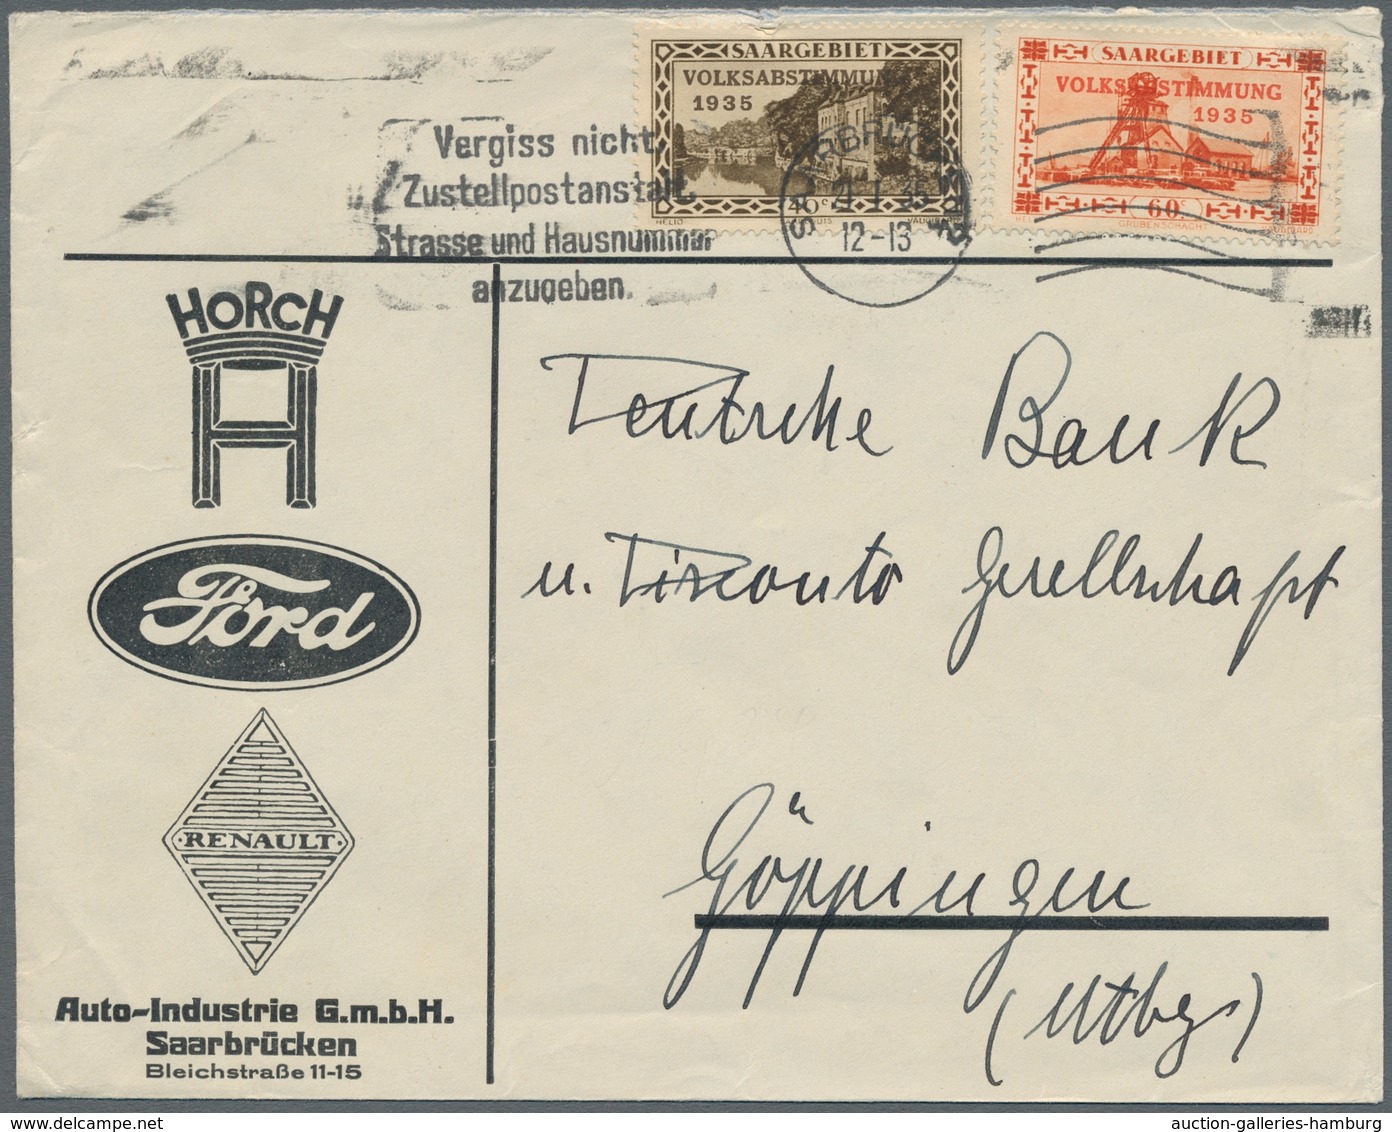 SAARGEBIET
VOLKSABSTIMMUNG
1935
40 c
HELIO
VAUGIRARD
SAARGEBIET
VOLKSABSTIMMUNG
1935
60 c
GRUBENSCHACHT
Vergiss nicht,
Zustellpostanstalt,
Strasse und Hausnummer
anzugeben.
SAARBRÜCKEN
21.1.35
12-13
HORCH
Ford
RENAULT
Auto-Industrie G.m.b.H.
Saarbrücken
Bleichstraße 11-15
Deutsche Bank
u. Disconto Gesellschaft
Göppingen
(Wtbg)
delcampe.net
auction-galleries-hamburg